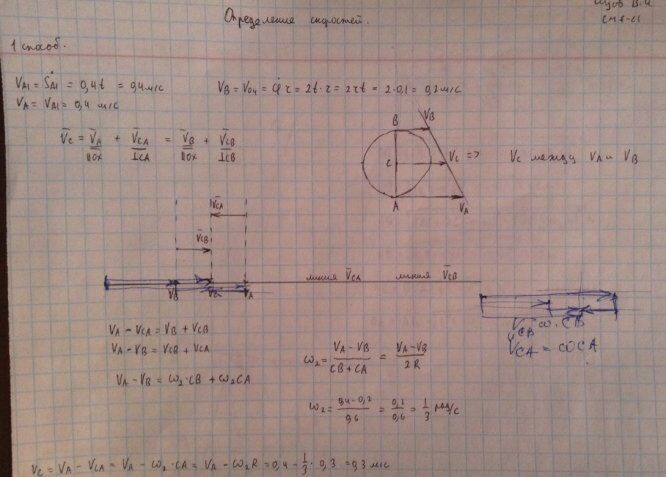 Определение скоростей.
1 способ.
V_A1 = Ṡ_A1 = 0,4t = 0,4 м/с
V_B = V_O4 = φ̇ r = 2t · r = 2rt = 2 · 0,1 = 0,2 м/с
V_A = V_A1 = 0,4 м/с
V̄_C = V̄_A + V̄_CA = V̄_B + V̄_CB
||OX ⊥CA ||OX ⊥CB
B V_B
C V_C => V_C между V_A и V_B
A V_A
V̄_CA
V̄_CB
линия V̄_CA линия V̄_CB
V_B V_C V_A
V_CB = ω · CB
V_CA = ωCA
V_A - V_CA = V_B + V_CB
V_A - V_B = V_CB + V_CA
V_A - V_B = ω₂ · CB + ω₂CA
ω₂ = (V_A - V_B)/(CB + CA) = (V_A - V_B)/2R
ω₂ = (0,4 - 0,2)/0,6 = 0,2/0,6 = 1/3 рад/с
V_C = V_A - V_CA = V_A - ω₂ · CA = V_A - ω₂R = 0,4 - 1/3 · 0,3 = 0,3 м/с